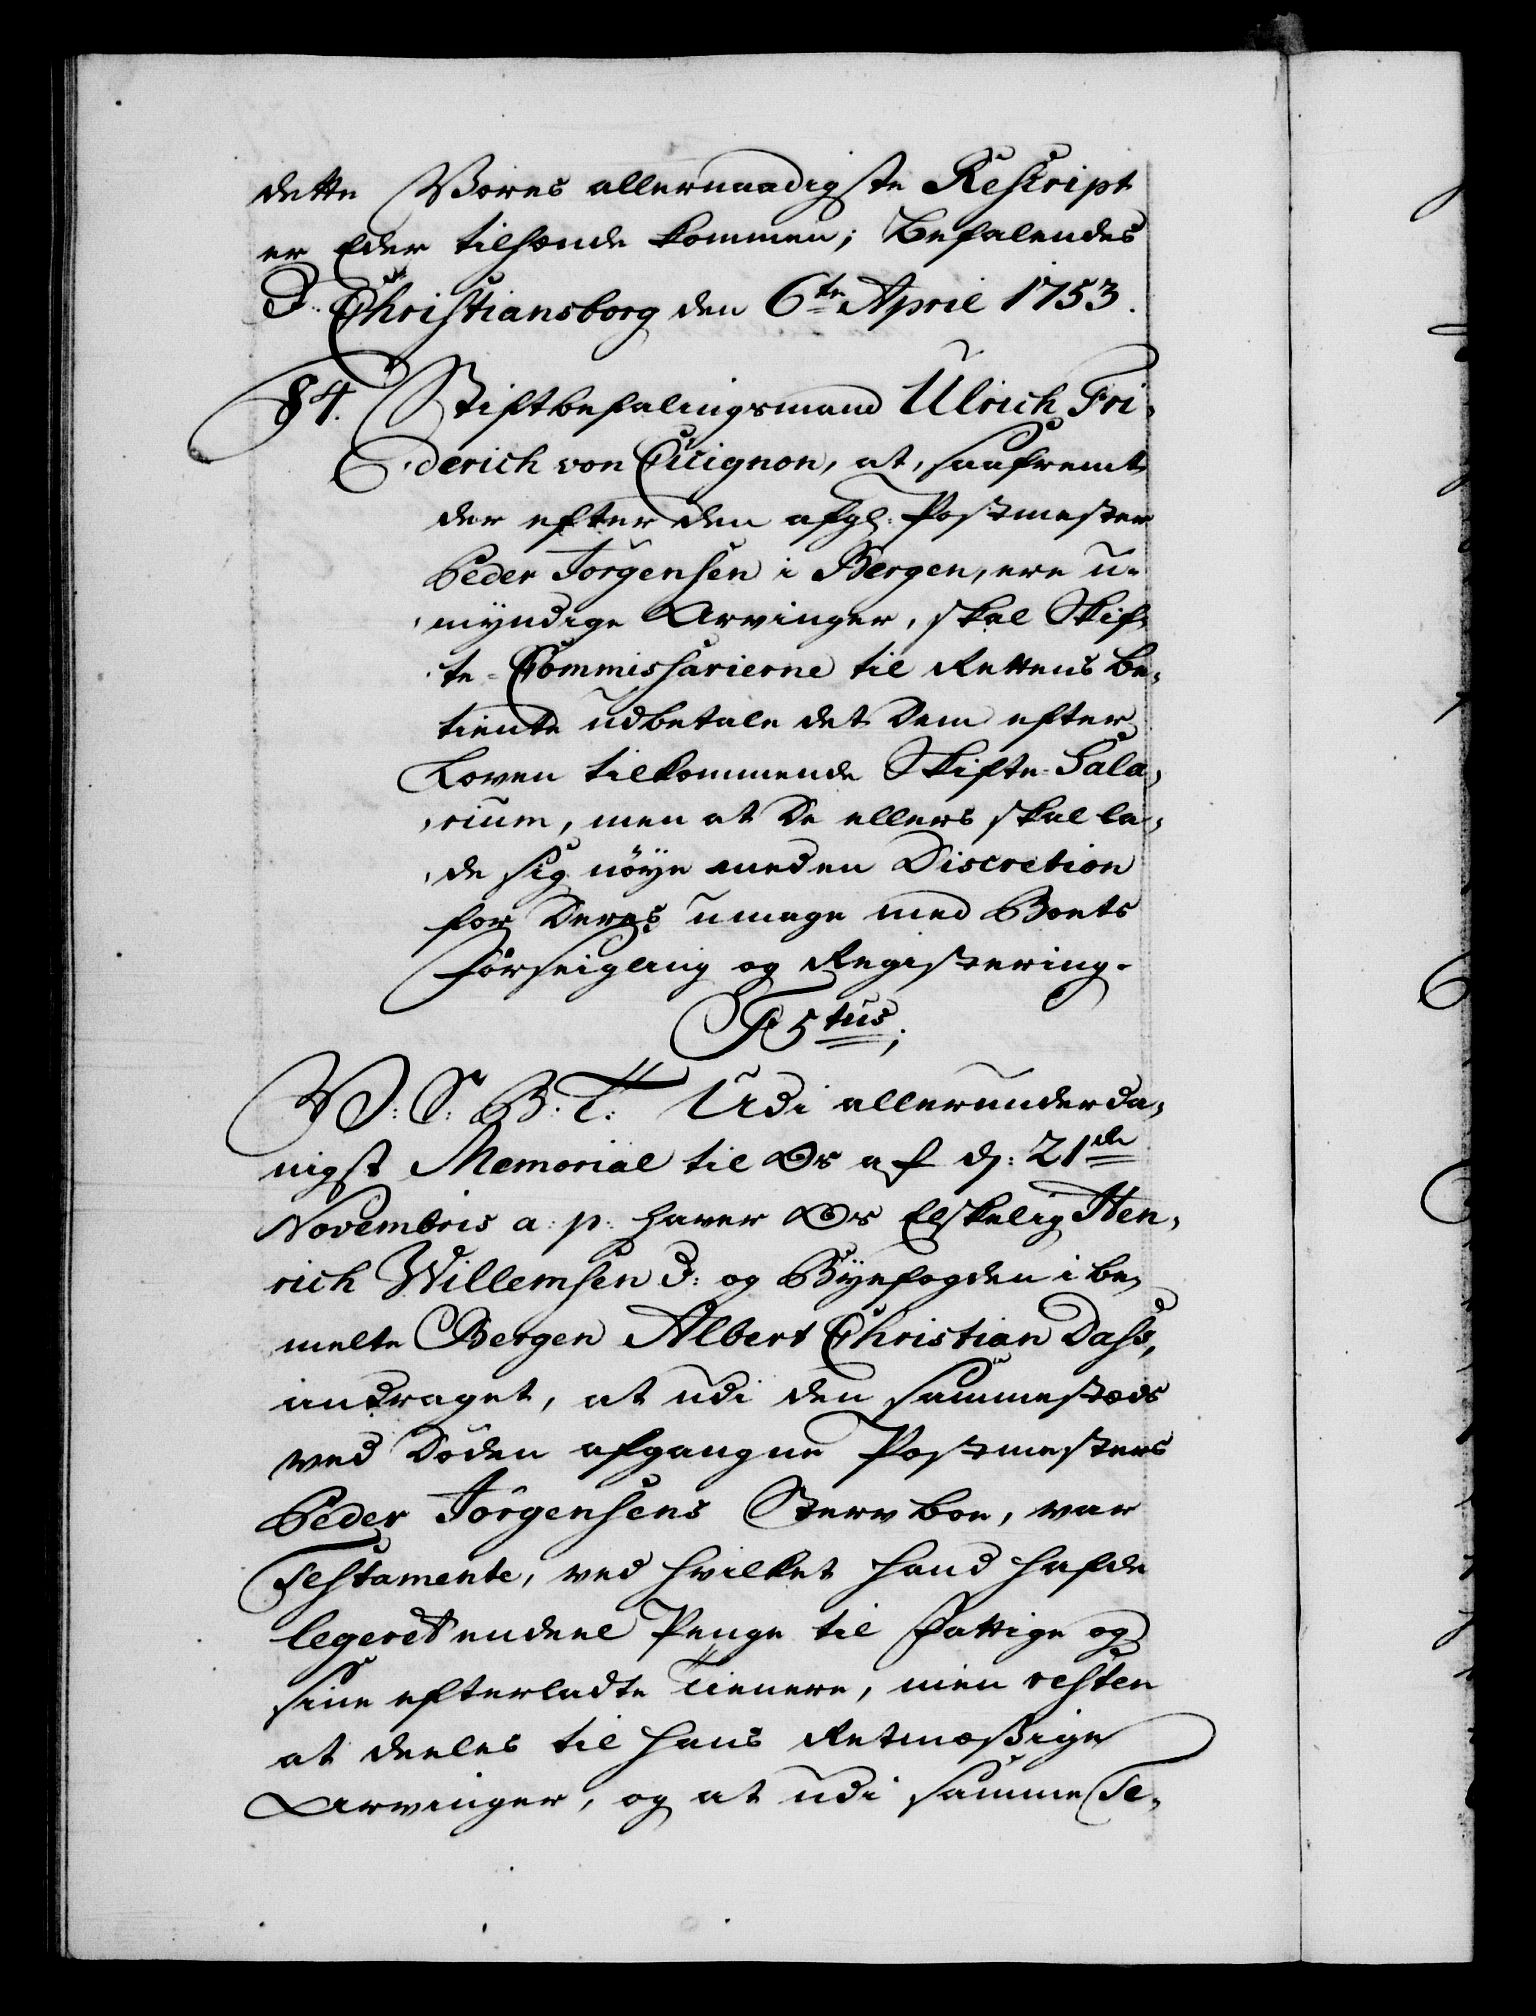 dette Vores allernaadigste Rescript
er Eder tilhænde kommen; Befalendes
d: Christiansborg den 6te April 1753.
84. Stiftbefalingsmand Ulrich Fri-
derich von Cicignon, at, saafremt
der efter den afg: Postmester
Peder Jörgensen i Bergen, ere u-
myndige Arvinger, skal Skif-
te-Commissarierne til Rettens be-
tiente udbetale det dem efter
Loven tilkommende Skifte-Sala-
rium, men at de ellers skal la-
de sig nöye med en Discretion
for deres umage med Boets
Forseigling og Registering.
F 5tus;
V: S: B: T: Udi allerunderda-
nigst Memorial til Os af d: 21de
Novembris a: p: haver Os Elskelig Hen-
rich Willemsen d: og Byefogden i be-
melte Bergen Albert Christian Dass,
andraget, at udi den sammestæds
ved Döden afgangne Postmesters
Peder Jörgensens Sterv boe, var
Testamente, ved hvilket hand hafde
legeret endeel Penge til Fattige og
sine efterladte Tienere, men resten
at deeles til hans Retmæßige
Arvinger, og at udi samme Te-